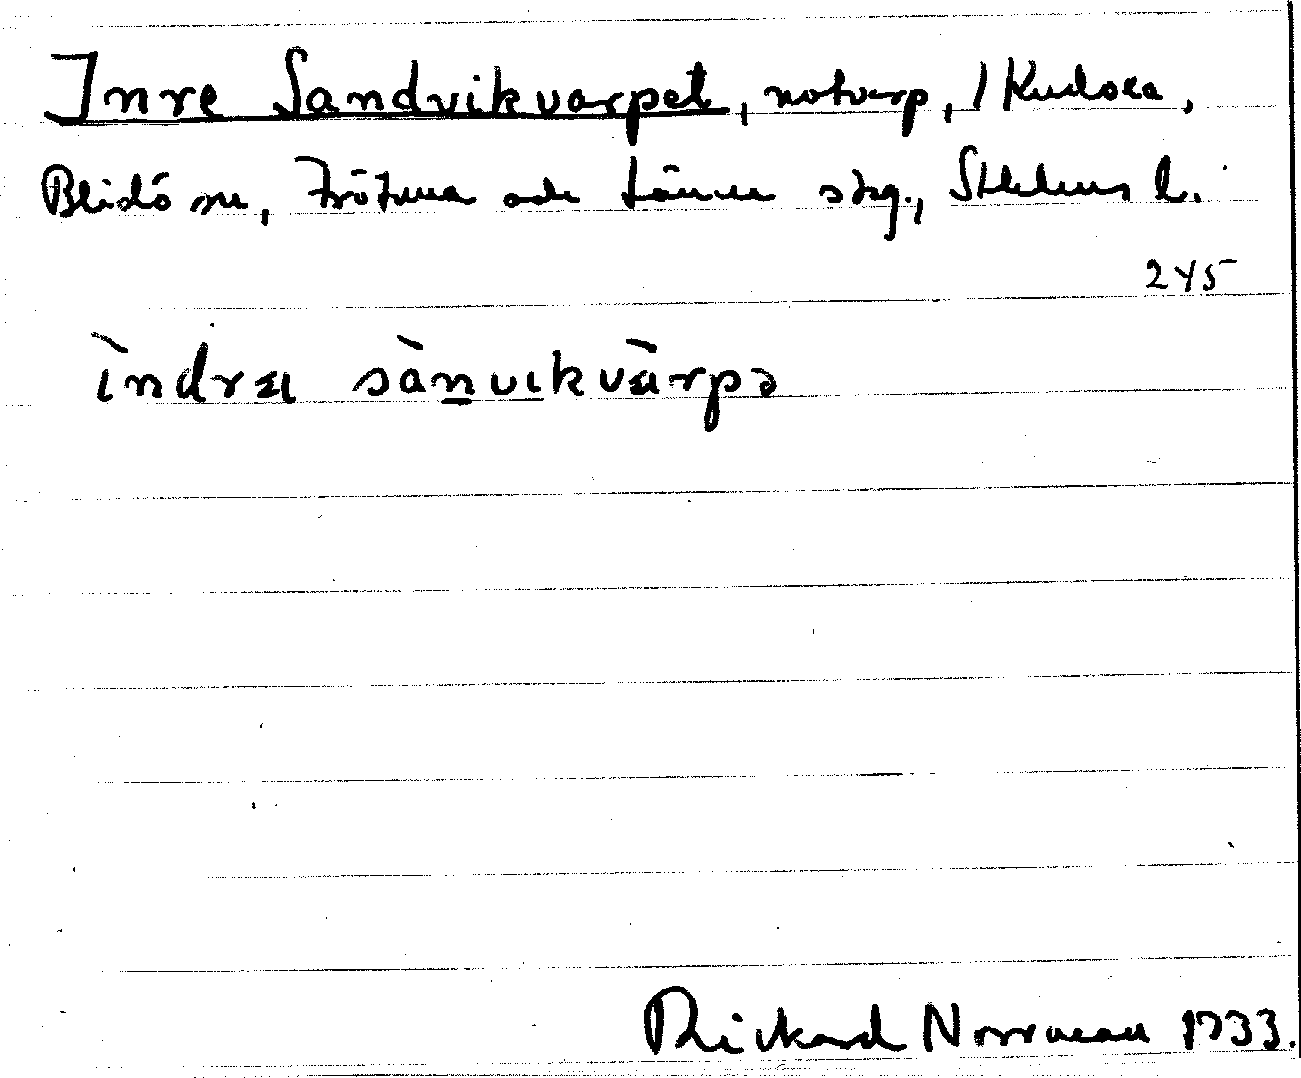 Inre Sandvikvarpet, notvarp, / Kudoxa,
Blidö sn, Frötuna och Länna skg., Sthlms l.
245
ìndrạ sàn̲vikvàrpə
Rickard Norrman 1933.